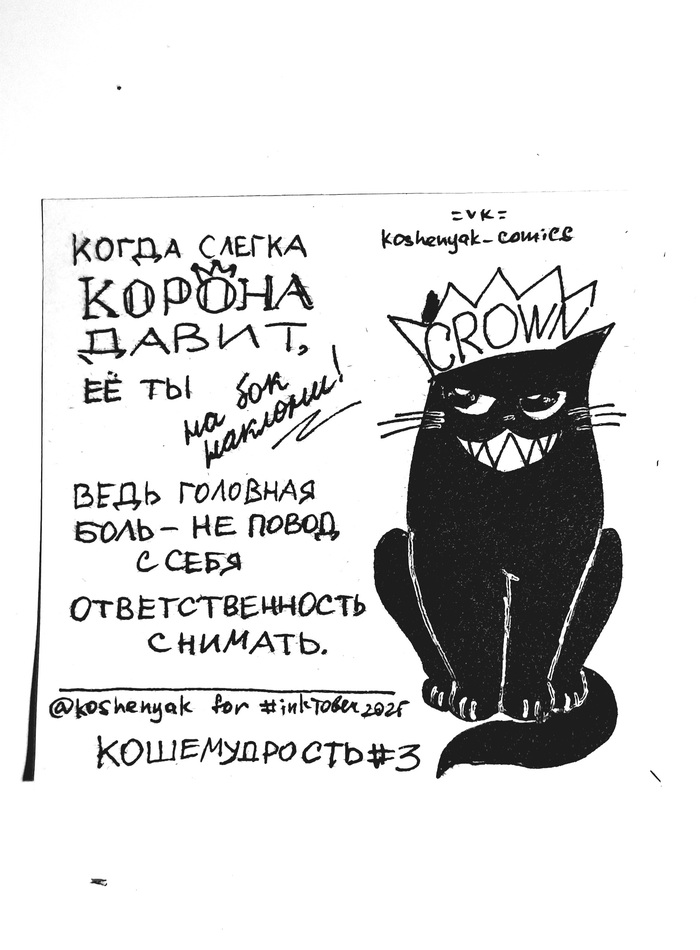 КОГДА СЛЕГКА
КОРОНА
ДАВИТ,
ЕЁ ТЫ
на бок
наклони!
ВЕДЬ ГОЛОВНАЯ
БОЛЬ – НЕ ПОВОД
С СЕБЯ
ОТВЕТСТВЕННОСТЬ
СНИМАТЬ.
=VK=
koshenyak-comics
CROWN
@koshenyak for #inktober2025
КОШЕМУДРОСТЬ#3